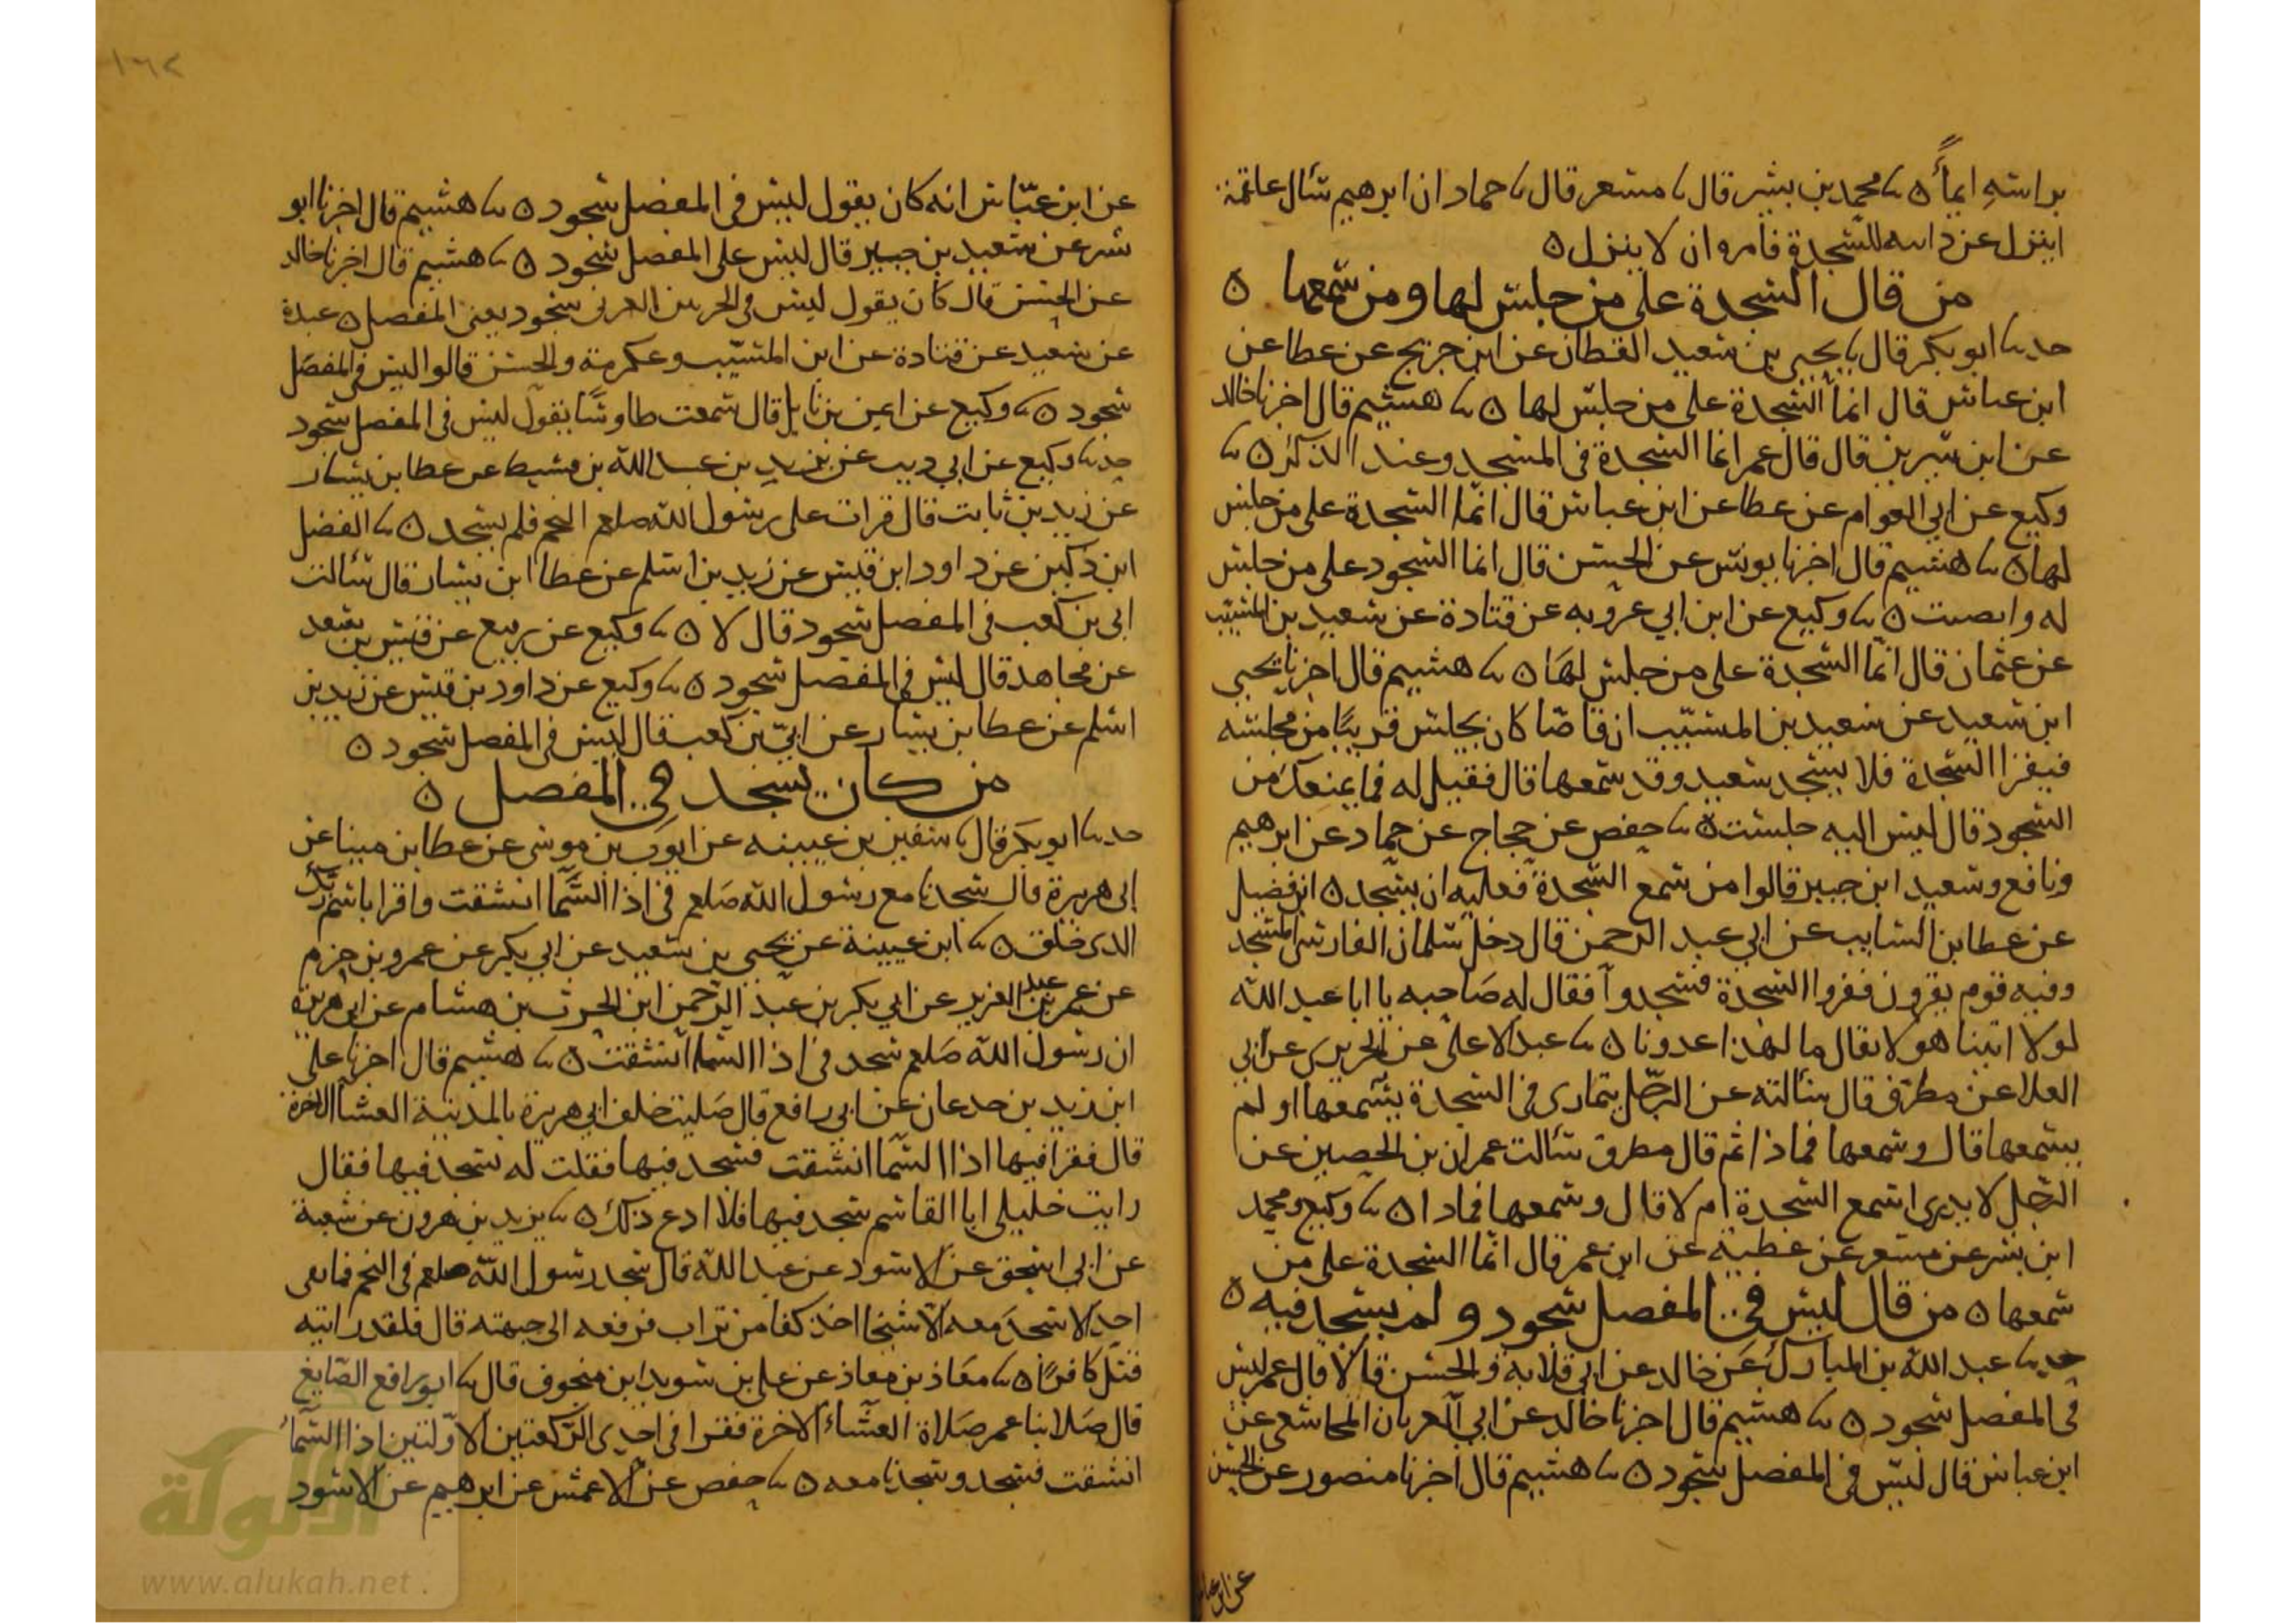 براسه ايماء ٥ ثنا محمد بن بشر قال ثنا مسعر قال ثنا حماد ان ابرهيم سال علقمة
اينزل عن دابته للسجدة فامره ان لا ينزل ٥
من قال السجدة على من جلس لها ومن سمعها ٥
حدثنا ابو بكر قال ثنا يحيى بن سعيد القطان عن ابن جريج عن عطا عن
ابن عباس قال انما السجدة على من جلس لها ٥ ثنا هشيم قال اخبرنا خالد
عن ابن سيرين قال قال عمر انما السجدة في المسجد وعند الذكر ٥ ثنا
وكيع عن ابي العوام عن عطا عن ابن عباس قال انما السجدة على من جلس
لها ٥ ثنا هشيم قال اخبرنا يونس عن الحسن قال انما السجود على من جلس
له وانصت ٥ ثنا وكيع عن ابن ابي عروبه عن قتادة عن سعيد بن المسيب
عن عثمان قال انما السجدة على من جلس لها ٥ ثنا هشيم قال اخبرنا يحيى
ابن سعيد عن سعيد بن المسيب ان قاصا كان يجلس قريبا من مجلسه
فيقرا السجدة فلا يسجد سعيد وقد سمعها قال فقيل له فما يمنعك من
السجود قال ليس اليه جلست ٥ ثنا حفص عن حجاج عن حماد عن ابرهيم
ونافع وسعيد ابن جبير قالوا من سمع السجدة فعليه ان يسجد ٥ ابن فضيل
عن عطا بن السايب عن ابي عبد الرحمن قال دخل سلمان الفارسي المسجد
وفيه قوم يقرون فقروا السجدة فسجدوا فقال له صاحبه يا ابا عبد الله
لولا اتينا هولا فقال ما لهذا غدونا ٥ ثنا عبد الاعلى عن الجريري عن ابي
العلا عن مطرف قال سالته عن الرجل يتمارى في السجدة يسمعها او لم
يسمعها قال وسمعها فماذا ثم قال مطرف سالت عمران بن الحصين عن
الرجل لا يدري اسمع السجدة ام لا قال وسمعها فماذا ٥ ثنا وكيع ومحمد
ابن بشر عن مسعر عن عطية عن ابن عمر قال انما السجدة على من
سمعها ٥ من قال ليس في المفصل سجود ولم يسجد فيه ٥
حدثنا عبد الله بن المبارك عن خالد عن ابي قلابة والحسن قالا قال عمر ليس
في المفصل سجود ٥ ثنا هشيم قال اخبرنا خالد عن ابي العريان المجاشعي عن
ابن عباس قال ليس في المفصل سجود ٥ ثنا هشيم قال اخبرنا منصور عن الحسن
عن ابن عباس
١٦٢
عن ابن عباس انه كان يقول ليس في المفصل سجود ٥ ثنا هشيم قال اخبرنا ابو
بشر عن سعيد بن جبير قال ليس على المفصل سجود ٥ ثنا هشيم قال اخبرنا خالد
عن الحسن قال كان يقول ليس في سجود يعني المفصل ٥ عبدة
عن سعيد عن قتادة عن ابن المسيب وعكرمة والحسن قالوا ليس في المفصل
سجود ٥ ثنا وكيع عن ايمن بن نابل قال سمعت طاوسا يقول ليس في المفصل سجود
حدثنا وكيع عن ابي ذيب عن يزيد بن عبد الله بن قسيط عن عطا بن يسار
عن زيد بن ثابت قال قرات على رسول الله صلعم النجم فلم يسجد ٥ ثنا الفضل
ابن دكين عن داود ابن قيس عن زيد بن اسلم عن عطا ابن يسار قال سالت
ابي بن كعب في المفصل سجود قال لا ٥ ثنا وكيع عن ربيع عن قيس بن سعد
عن مجاهد قال ليس في المفصل سجود ٥ ثنا وكيع عن داود بن قيس عن زيد بن
اسلم عن عطا بن يسار عن ابي بن كعب قال ليس في المفصل سجود ٥
من كان يسجد في المفصل ٥
حدثنا ابو بكر قال ثنا سفين بن عيينه عن ايوب بن موسى عن عطا بن مينا عن
ابي هريرة قال سجدنا مع رسول الله صلعم في اذا السما انشقت واقرا باسم ربك
الذي خلق ٥ ثنا ابن عيينة عن يحيى بن سعيد عن ابي بكر عن عمرو بن حزم
عن عمر بن عبد العزيز عن ابي بكر بن عبد الرحمن ابن الحرث بن هشام عن ابي هريرة
ان رسول الله صلعم سجد في اذا السما انشقت ٥ ثنا هشيم قال اخبرنا علي
ابن زيد بن جدعان عن ابي رافع قال صليت خلف ابي هريرة بالمدينة العشا الاخرة
قال فقرا فيها اذا السما انشقت فسجد فيها فقلت له تسجد فيها فقال
رايت خليلي ابا القاسم سجد فيها فلا ادع ذلك ٥ ثنا يزيد بن هرون عن شعبة
عن ابي اسحق عن الاسود عن عبد الله قال سجد رسول الله صلعم في النجم فما بقي
احد الا سجد معه الا شيخا اخذ كفا من تراب فرفعه الى جبهته قال فلقد رايته
قتل كافرا ٥ ثنا معاذ بن معاذ عن علي بن سويد ابن منجوف قال ثنا ابو رافع الصايغ
قال صلا بنا عمر صلاة العشاء الاخرة فقرا في احدى الركعتين الاولتين اذا السماء
انشقت فسجد وسجدنا معه ٥ ثنا حفص عن الاعمش عن ابرهيم عن الاسود
الألوكة
www.alukah.net